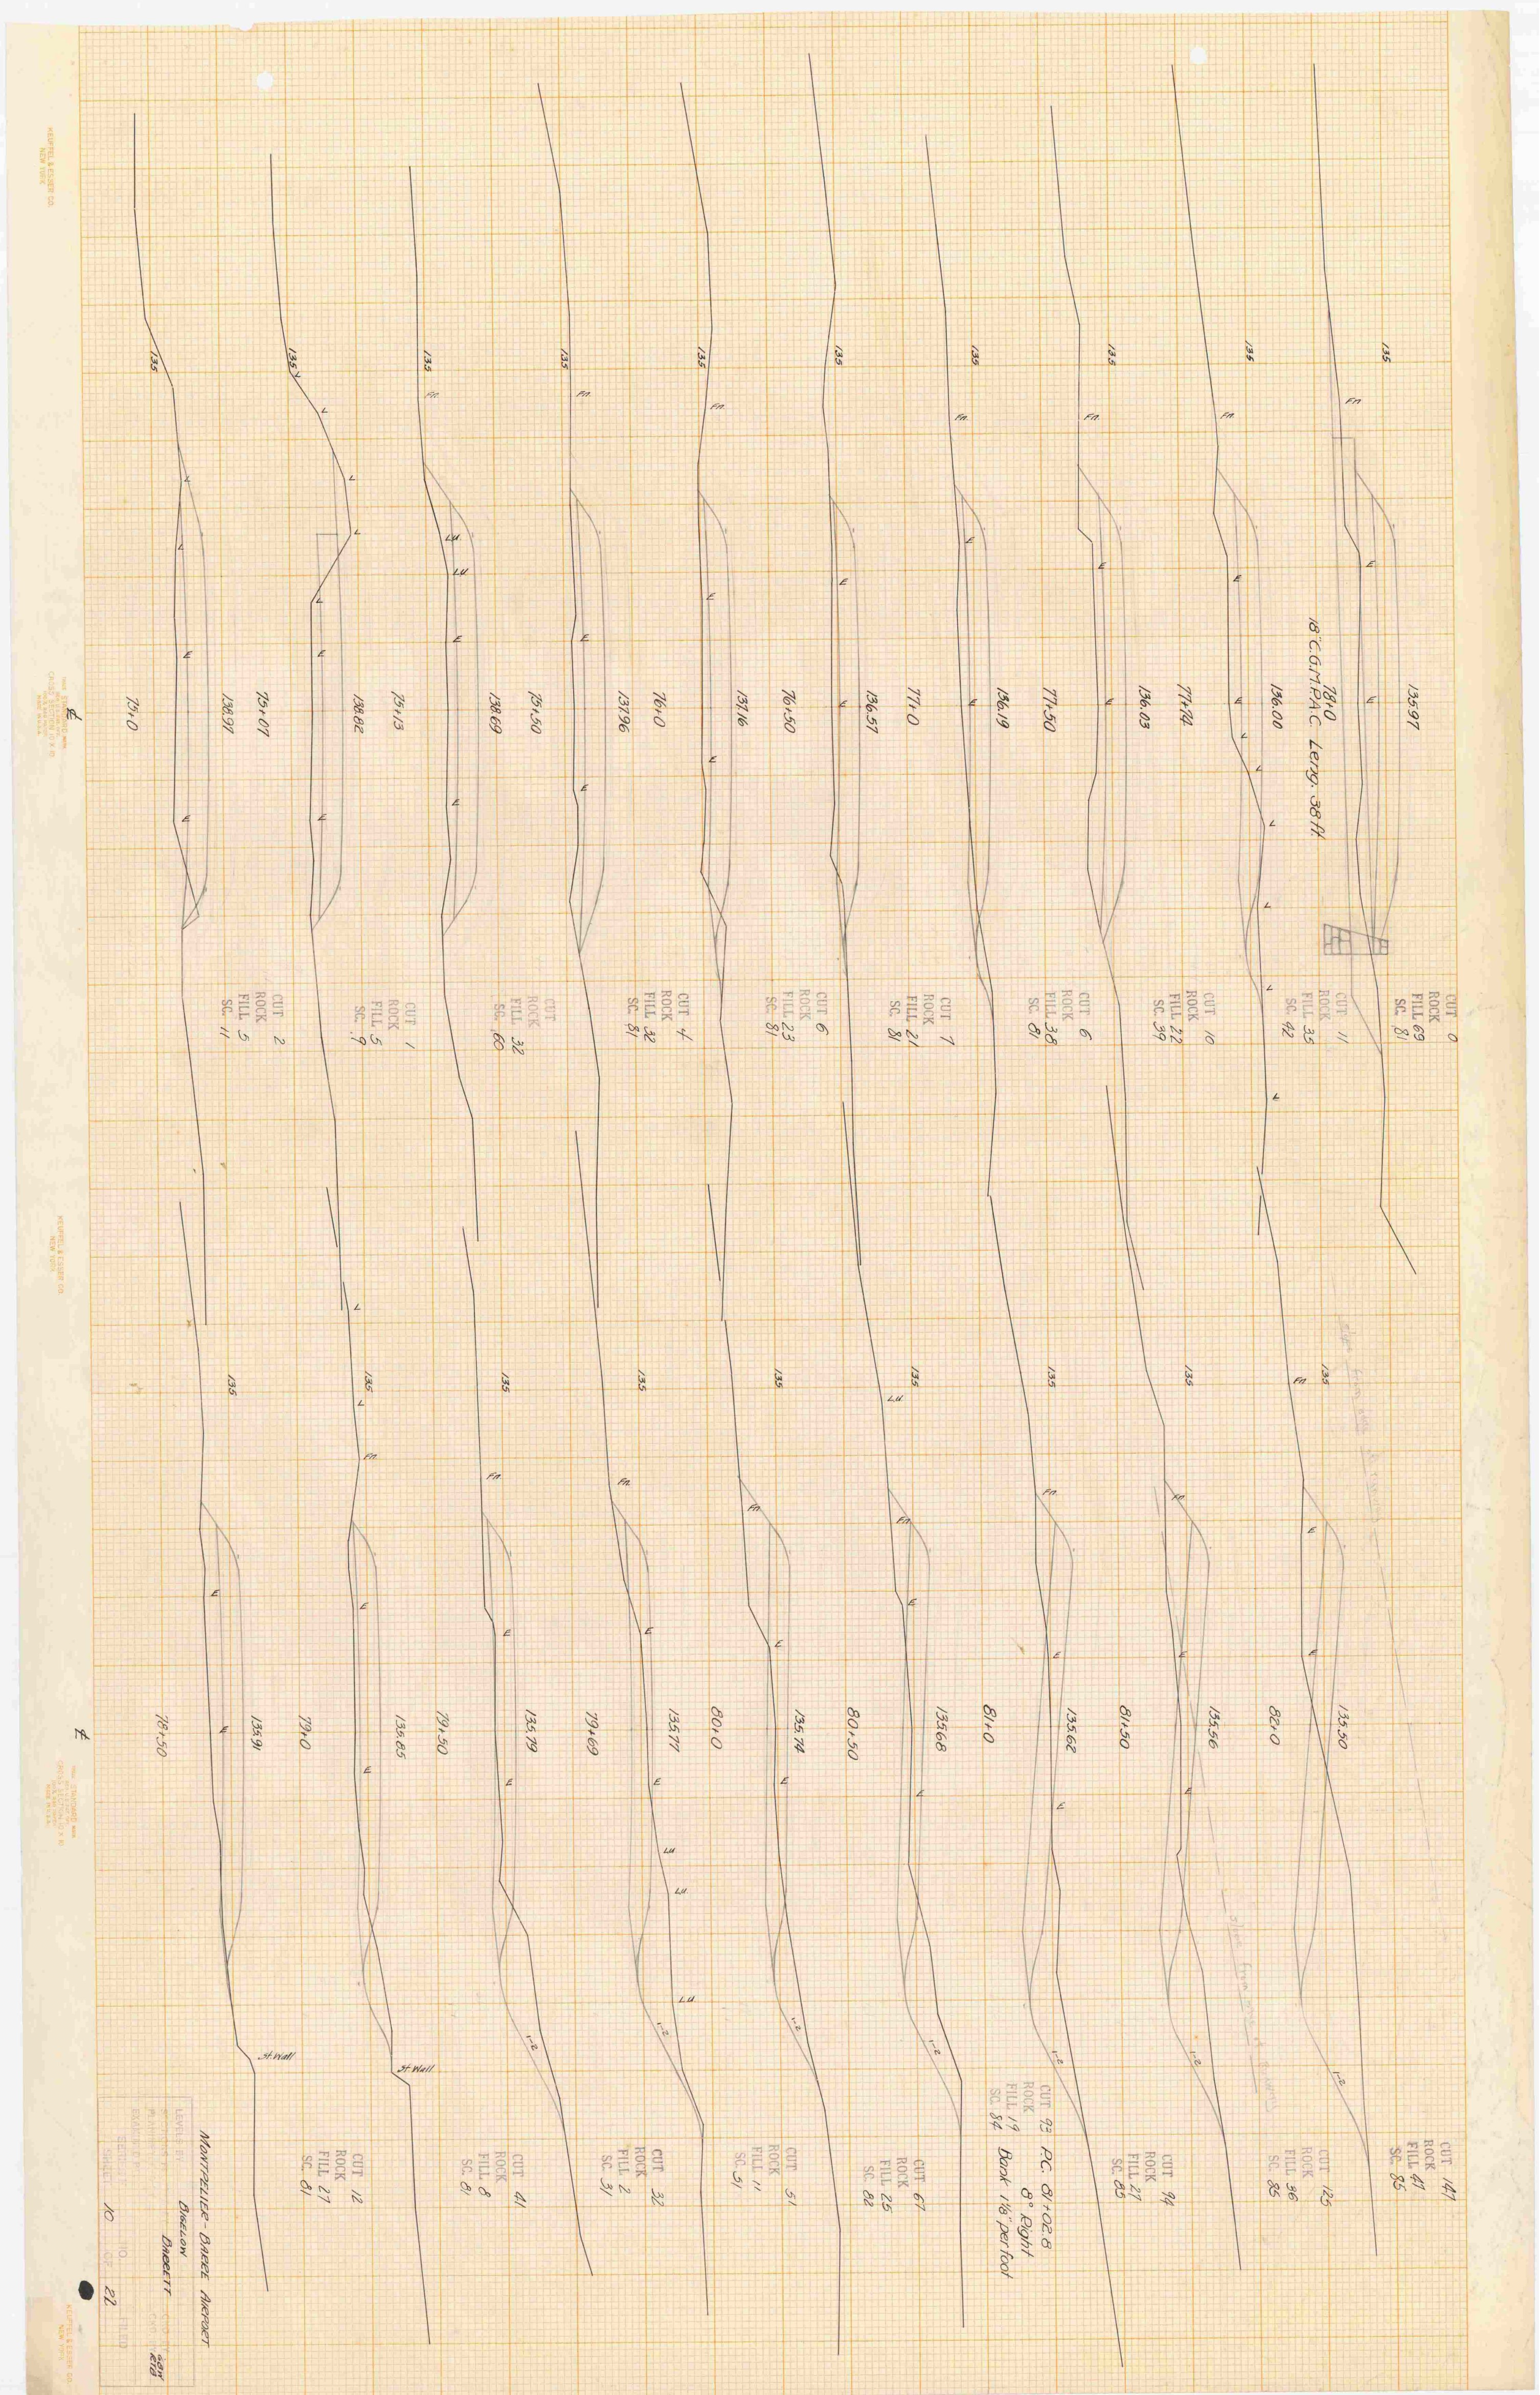 KEUFFEL & ESSER CO.
NEW YORK
CROSS SECTION 10 X 10
℄
75+0
135
138.97
CUT 2
ROCK
FILL 5
SC. 11
75+07
135
138.82
CUT 1
ROCK
FILL 5
SC. 9
75+13
135
138.69
CUT
ROCK
FILL 32
SC. 60
75+50
135
137.96
CUT 4
ROCK
FILL 32
SC. 81
76+0
135
137.16
CUT 6
ROCK
FILL 23
SC. 81
76+50
135
136.57
CUT 7
ROCK
FILL 21
SC. 81
77+0
135
136.19
CUT 6
ROCK
FILL 38
SC. 81
77+50
135
136.03
CUT 10
ROCK
FILL 22
SC. 39
77+74
135
136.00
CUT 11
ROCK
FILL 35
SC. 42
78+0
18" C.G.M.P.A.C. Leng. 38 ft.
135
135.97
CUT 0
ROCK
FILL 69
SC. 81
℄
78+50
135
135.91
St. Wall
CUT 12
ROCK
FILL 27
SC. 81
79+0
135
135.85
St. Wall
CUT 41
ROCK
FILL 8
SC. 81
79+50
135
135.79
1-2
CUT 32
ROCK
FILL 2
SC. 31
79+69
135
135.77
1-2
CUT 51
ROCK
FILL 11
SC. 51
80+0
135
135.74
1-2
CUT 67
ROCK
FILL 25
SC. 82
80+50
135
135.68
1-2
CUT 93
ROCK
FILL 19
SC. 84
P.C. 81+02.8
8° Right
Bank 1⅛" per foot
81+0
135
135.62
1-2
CUT 94
ROCK
FILL 27
SC. 85
81+50
135
135.56
1-2
CUT 125
ROCK
FILL 36
SC. 85
82+0
135
135.50
1-2
CUT 147
ROCK
FILL 47
SC. 85
MONTPELIER - BARRE AIRPORT
BIGELOW
BARRETT
SHEET 10 OF 22
KEUFFEL & ESSER CO.
NEW YORK